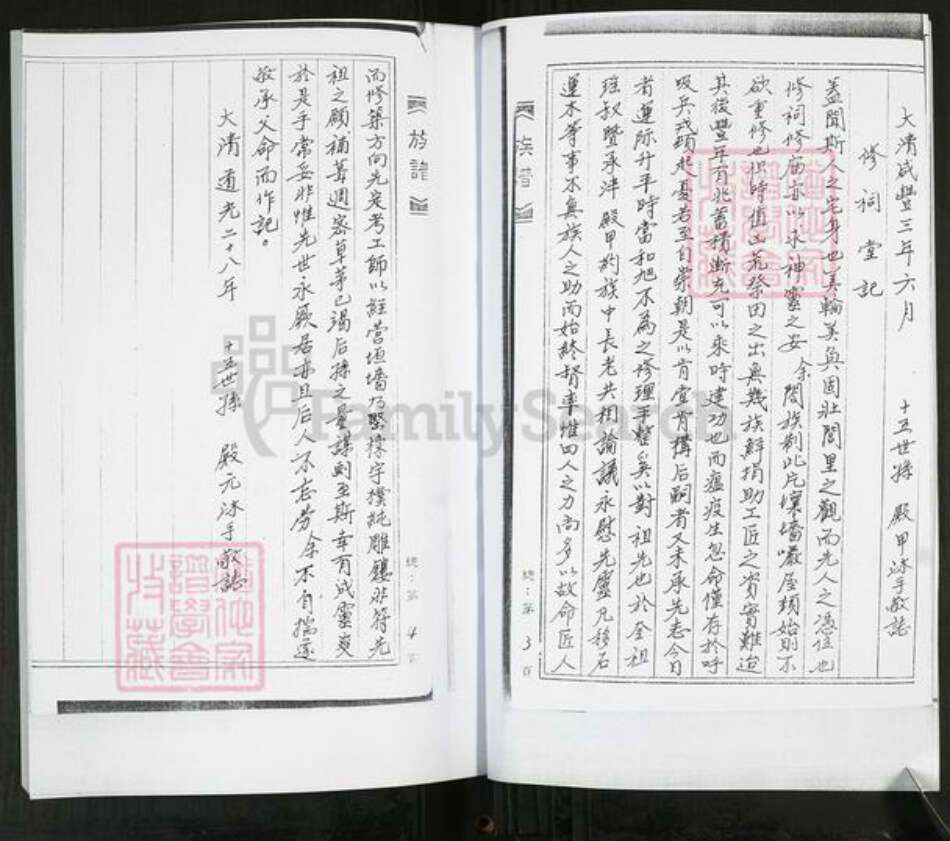 大清咸豐三年六月 十五世孫 殿甲沐手敬誌
修祠堂記
蓋聞斯人之宅身也美輪美奐固壯閭里之觀而先人之憑依也
修祠修廟亦以永神靈之安余閤族刱此片壤墻嚴屋頹始則不
欲重修也但時值凶荒祭田之出無幾族鮮捐助工匠之資實難迨
其後豐年有兆蓄積漸充可以乘時建功也而瘟疫生忽命僅存於呼
吸兵戎頻起憂若至自崇朝是以肯堂肯構后嗣者又未承先志今日
者運際升平時當和旭不為之修理平整奚以對祖先也於全祖
珽叔暨承泮殿甲約族中長老共相論議永慰先靈凡移石
運木等事不無族人之助而始終督率惟四人之力尚多以故命匠人
族譜
總：第 3 頁
而修築方向先定考工師以經營垣墻乃堅椽宇樸純雕鏤非符先
祖之願補葺週密草茅已渴后孫之量謀到至斯幸有成靈爽
於是乎常妥非惟先世永厥居亦且后人不忘勞余不自揣遂
敬承父命而作記。
大清道光二十八年 十五世孫 殿元沐手敬誌
族譜
總：第 4 頁
FamilySearch